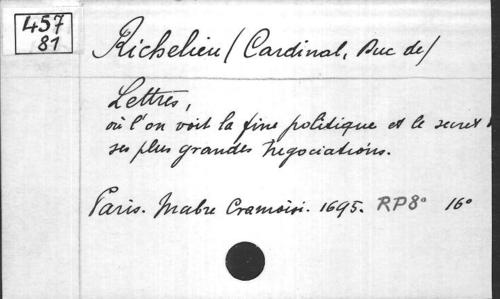 457
81
Richelieu / Cardinal, Duc de /
Lettres,
où l'on voit la fine politique et le secret
ses plus grandes Negociations.
Paris. Mabre Cramoisi. 1695. RP8° 16°